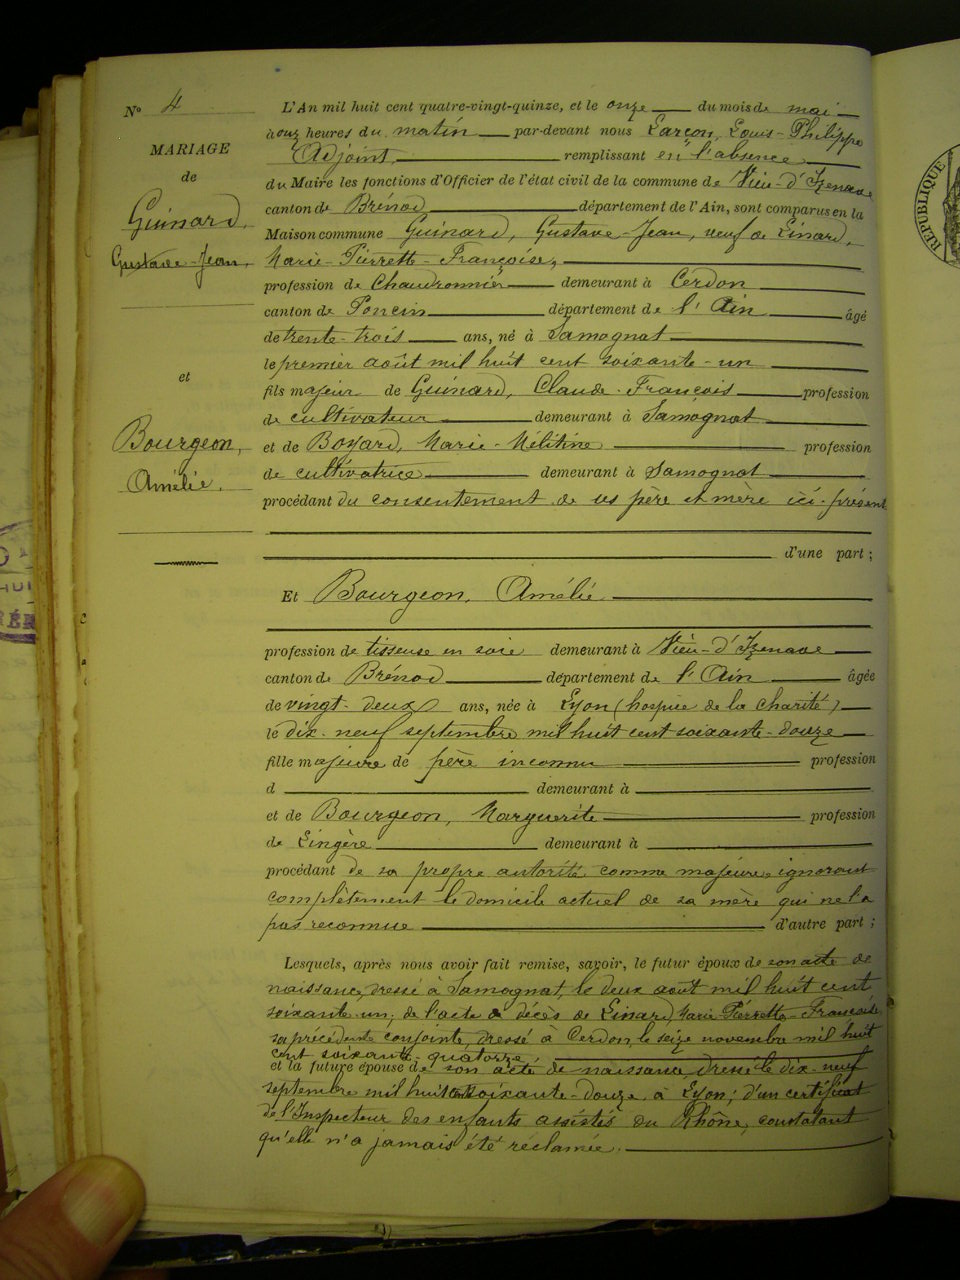 N° 4
MARIAGE
de
Guinard,
Gustave-Jean,
et
Bourgeon,
Amélie.
L'An mil huit cent quatre-vingt-quinze, et le onze du mois de mai
à onz heures du matin par-devant nous Larçon, Louis-Philippe
Adjoint, remplissant en l'absence
du Maire les fonctions d'Officier de l'état civil de la commune de Vieu-d'Izenave
canton de Brénod département de l'Ain, sont comparus en la
Maison commune Guinard, Gustave-Jean, veuf de Linard,
Marie-Pierrette-Françoise,
profession de Chaudronnier demeurant à Cerdon
canton de Poncin département de l'Ain âgé
de trente-trois ans, né à Samognat
le premier août mil huit cent soixante-un
fils majeur de Guinard, Claude-François profession
de cultivateur demeurant à Samognat
et de Boyard, Marie-Mélitine profession
de cultivatrice demeurant à Samognat
procédant du consentement de ses père et mère ici-présent
d'une part ;
Et Bourgeon, Amélie
profession de tisseuse en soie demeurant à Vieu-d'Izenave
canton de Brénod département de l'Ain âgée
de vingt-deux ans, née à Lyon (hospice de la Charité)
le dix-neuf septembre mil huit cent soixante-douze
fille majeure de père inconnu profession
d demeurant à
et de Bourgeon, Marguerite profession
de Lingère demeurant à
procédant de sa propre autorité comme majeure, ignorant
complètement le domicile actuel de sa mère qui ne l'a
pas reconnue d'autre part ;
Lesquels, après nous avoir fait remise, savoir, le futur époux de son acte de
naissance, dressé à Samognat, le deux août mil huit cent
soixante-un; de l'acte de décès de Linard, Marie-Pierrette-Françoise,
sa précédente conjointe, dressé à Cerdon, le seize novembre mil huit
cent soixante-quatorze;
et la future épouse de son acte de naissance, dressé le dix-neuf
septembre mil huit cent soixante-douze, à Lyon; d'un certificat
de l'Inspecteur des enfants assistés du Rhône, constatant
qu'elle n'a jamais été réclamée.
RÉPUBLIQUE